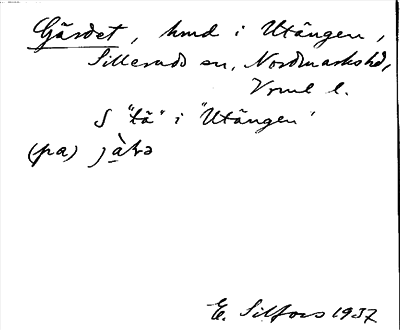 Gärdet, hmd i Utängen,
Silleruds sn, Nordmarks hd,
Vrml l.
S "tä" i "Utängen"
(på)
E. Silfors 1937